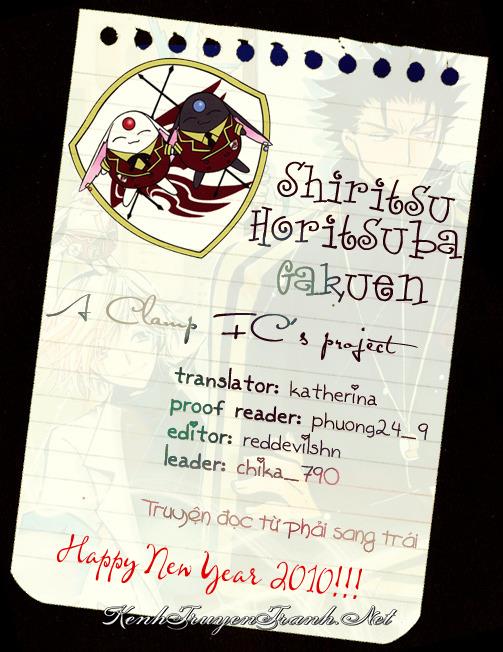 Shiritsu
Horitsuba
Gakuen
A Clamp FC's project
translator: katherina
proof reader: phuong24_9
editor: reddevilshn
leader: chika_790
Truyện đọc từ phải sang trái
Happy New Year 2010!!!
KenhTruyenTranh.Net